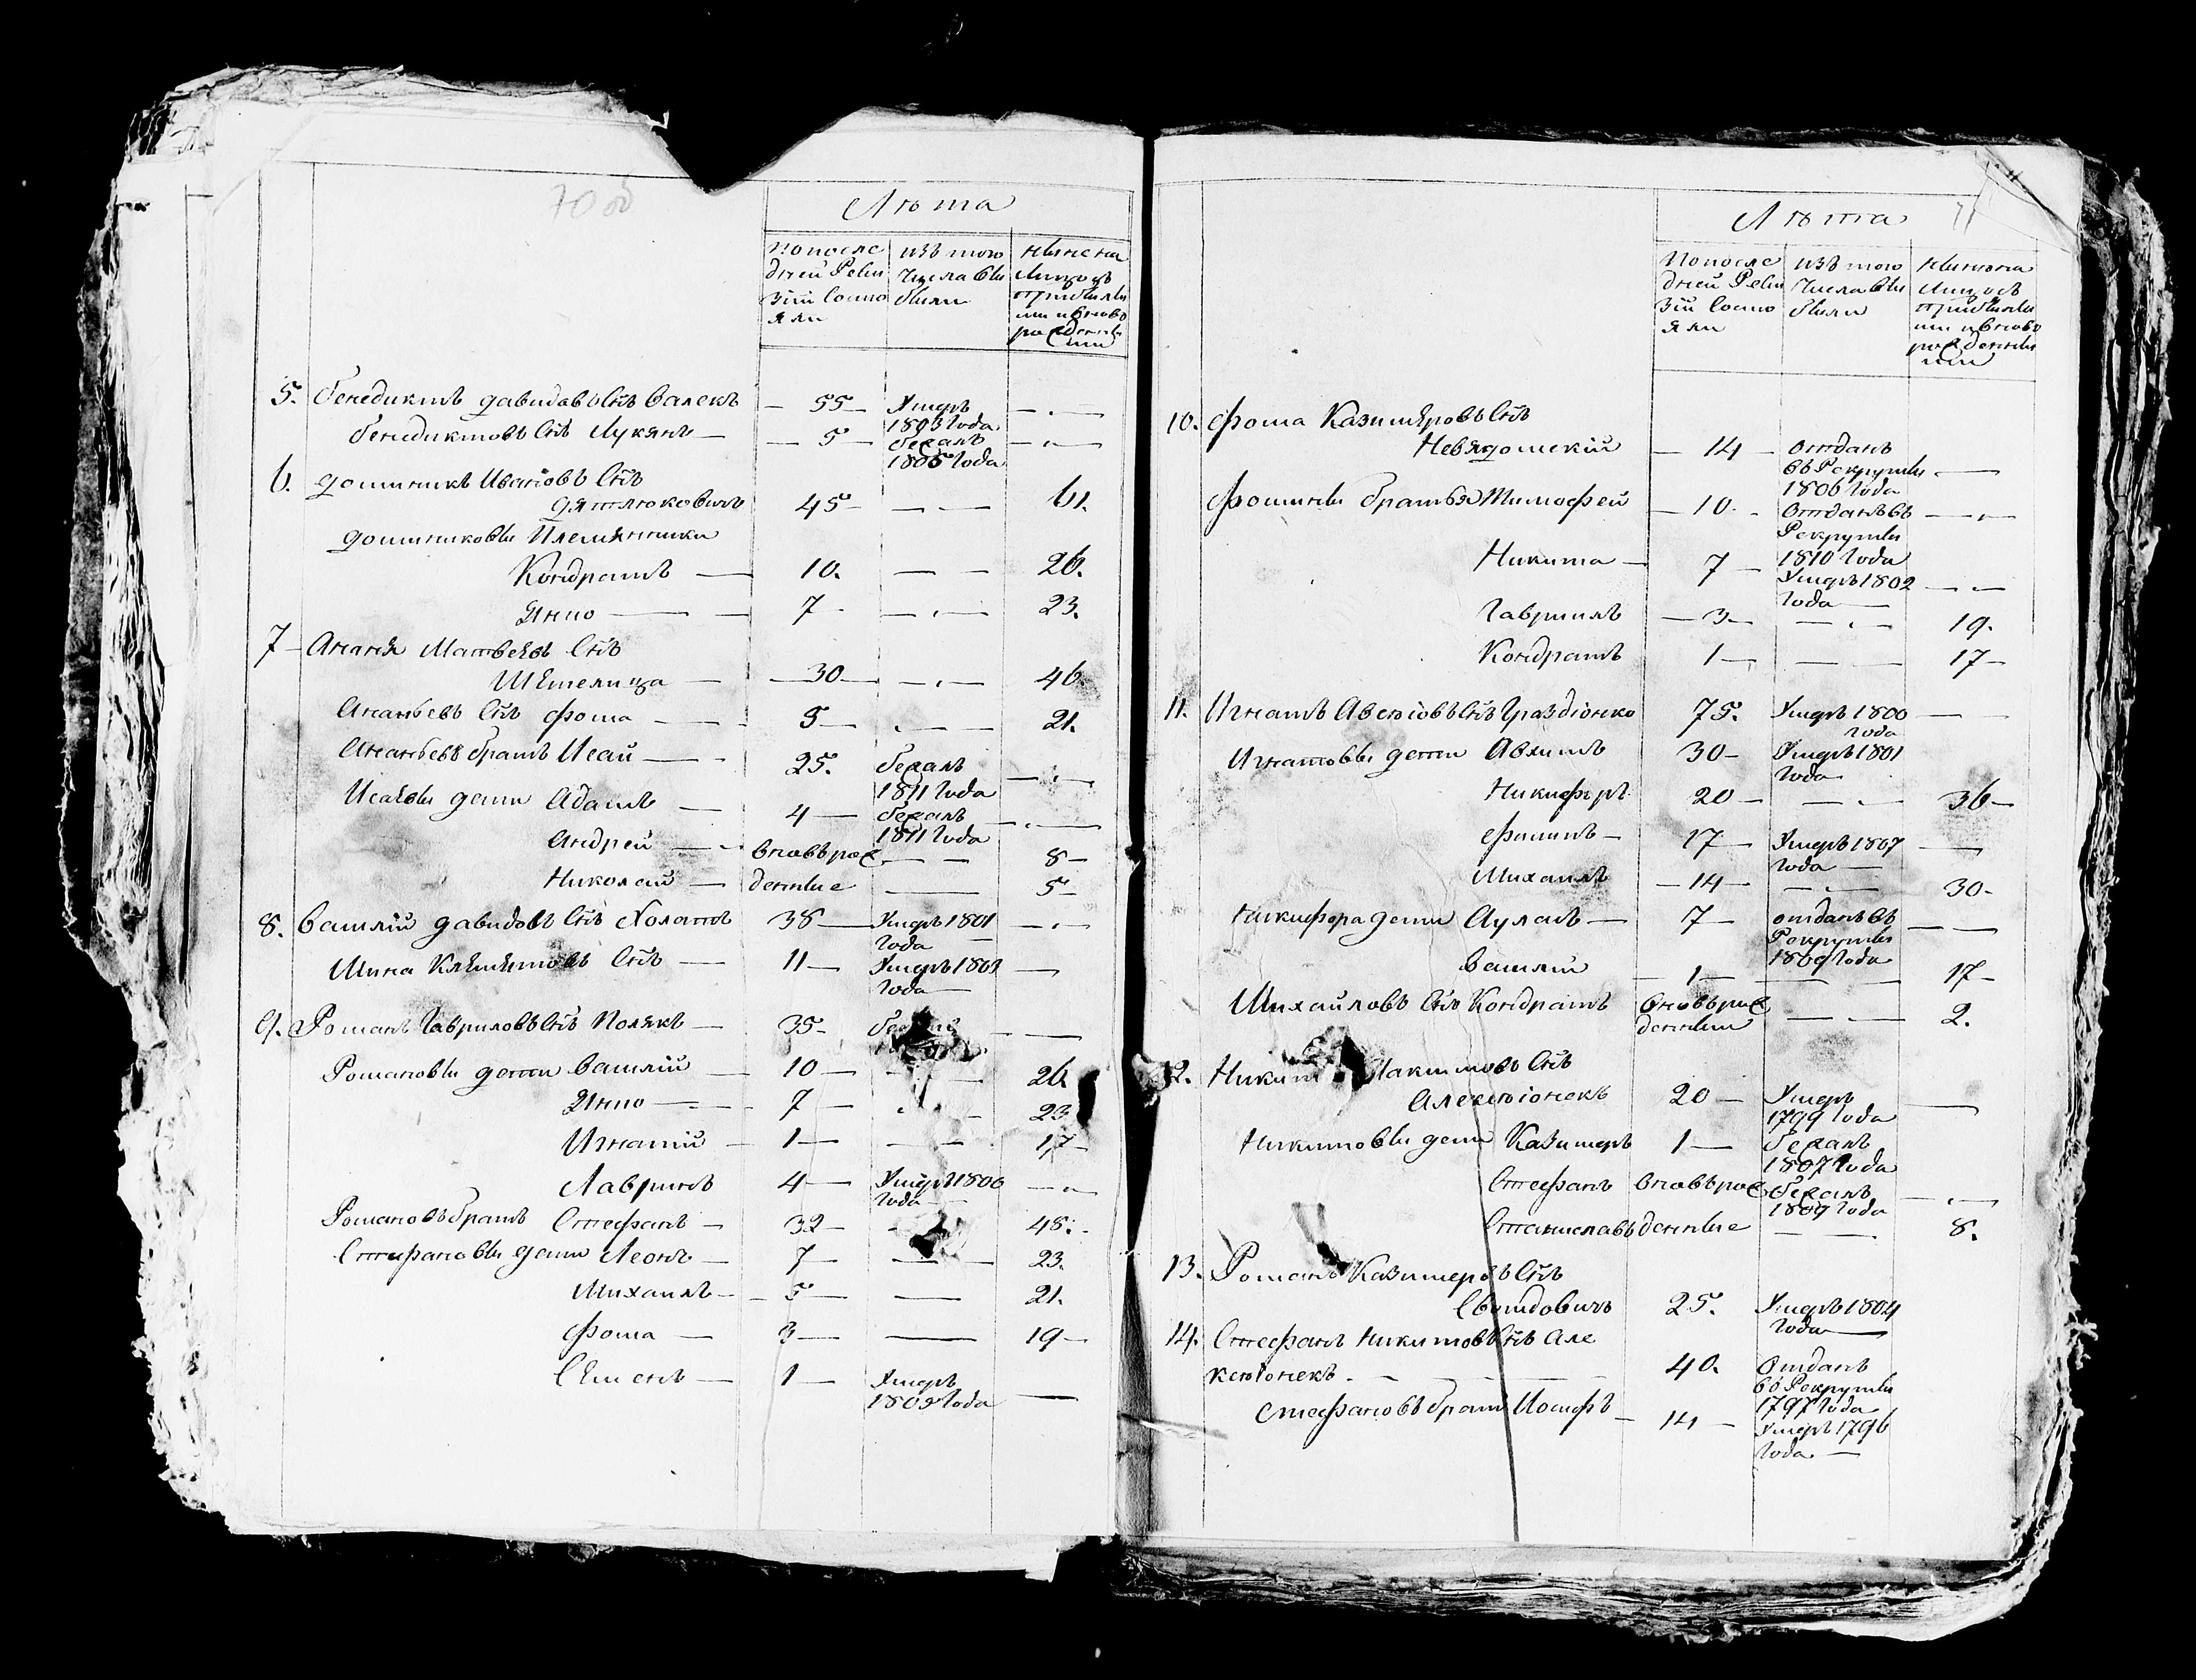 70 об
Лѣта
по после
дней Реви
зіи состо
яли
изъ того
числа вы
были
нынѣ на
лицо съ
прибылы
ми и вново
рожденны
ми
5. Бенедиктъ Давидовъ Снъ Валекъ — 55 — Умеръ 1803 Года — . —
Бенедиктовъ Снъ Лукянъ — — 5 — бежалъ 1805 Года — „ —
6. Доминикъ Ивановъ Снъ
Дятлюковичъ 45 — — . — 61.
Доминиковы Племянники
Кондратъ — 10. — — 26.
Янко — — 7 - — . — 23.
7 — Ананя Матвеевъ Снъ
Шемелица — — 30 — — . — 46.
Ананьевъ Снъ Фома — 5 — . — 21.
Ананьевъ братъ Исай — 25. бежалъ 1811 Года — . —
Исаевы дети Адамъ — 4 — бежалъ 1811 Года — . —
Андрей — вновъ рож — — 8 —
Николай — денные — 5 —
8. Василій Давидовъ Снъ Холатъ 38 — Умеръ 1801 Года — . —
Мина Клеметовъ Снъ — 11 — Умеръ 1803 Года —
9. Романъ Гавриловъ Снъ Полякъ — 35 —
Романовы дети Василій — 10 — 26.
Янко — 7 — 23
Игнатій — 1 — — — 17 —
Лавринъ 4 — Умеръ 1806 Года — . —
Романовъ братъ Стефанъ — 32 — 48.
Стефановы дети Леонъ — 7 — — 23.
Михаилъ — 5 — — 21.
Фома — 3 — — 19 —
Семенъ — 1 — Умеръ 1805 Года —
71
Лѣта
по после
дней Реви
зіи состо
яли
изъ того
числа вы
были
нынѣ на
лицо съ
прибылы
ми и вново
рожденны
ми
10. Фома Казимеровъ Снъ
Невядомскій — 14 — отданъ въ Рекруты 1806 Года —
Фомины братья Тимофей — 10 - Отданъ въ Рекруты 1810 Года — . —
Никита — 7 — Умеръ 1802 Года — . —
Гаврилъ — 3 — — . — 19.
Кондратъ 1 — — . — 17 —
11. Игнатъ Авсюіовъ Снъ Граздіонко 75. Умеръ 1800 Года — —
Игнатовы дети Авхимъ 30 — Умеръ 1801 Года
Никифоръ 20 — — . — 36 —
Филипъ — 17 — Умеръ 1807 Года —
Михаилъ — 14 — — . — 30 -
Никифора дети Ауласъ — 7 — отданъ въ Рекруты 1809 Года — —
Василій — 1 — — — 17 —
Михайловъ Снъ Кондратъ вновъ рож денныи — . — 2.
12. Никит Максимовъ Снъ
Алексюіонекъ 20 — Умеръ 1799 Года —
Никитовы дети Казимеръ 1 — бежалъ 1807 Года
Стефанъ вновъ рож бежалъ 1809 Года — . —
Станиславъ денные — — 8.
13. Романъ Казимеровъ Снъ
Свитдовичъ 25. Умеръ 1804 Года —
14. Стефанъ Никитовъ Снъ Але
ксюіонекъ - — — 40. Отданъ во Рекруты 1797 Года
Стефановъ братъ Иосифъ — 14 — Умеръ 1796 Года —